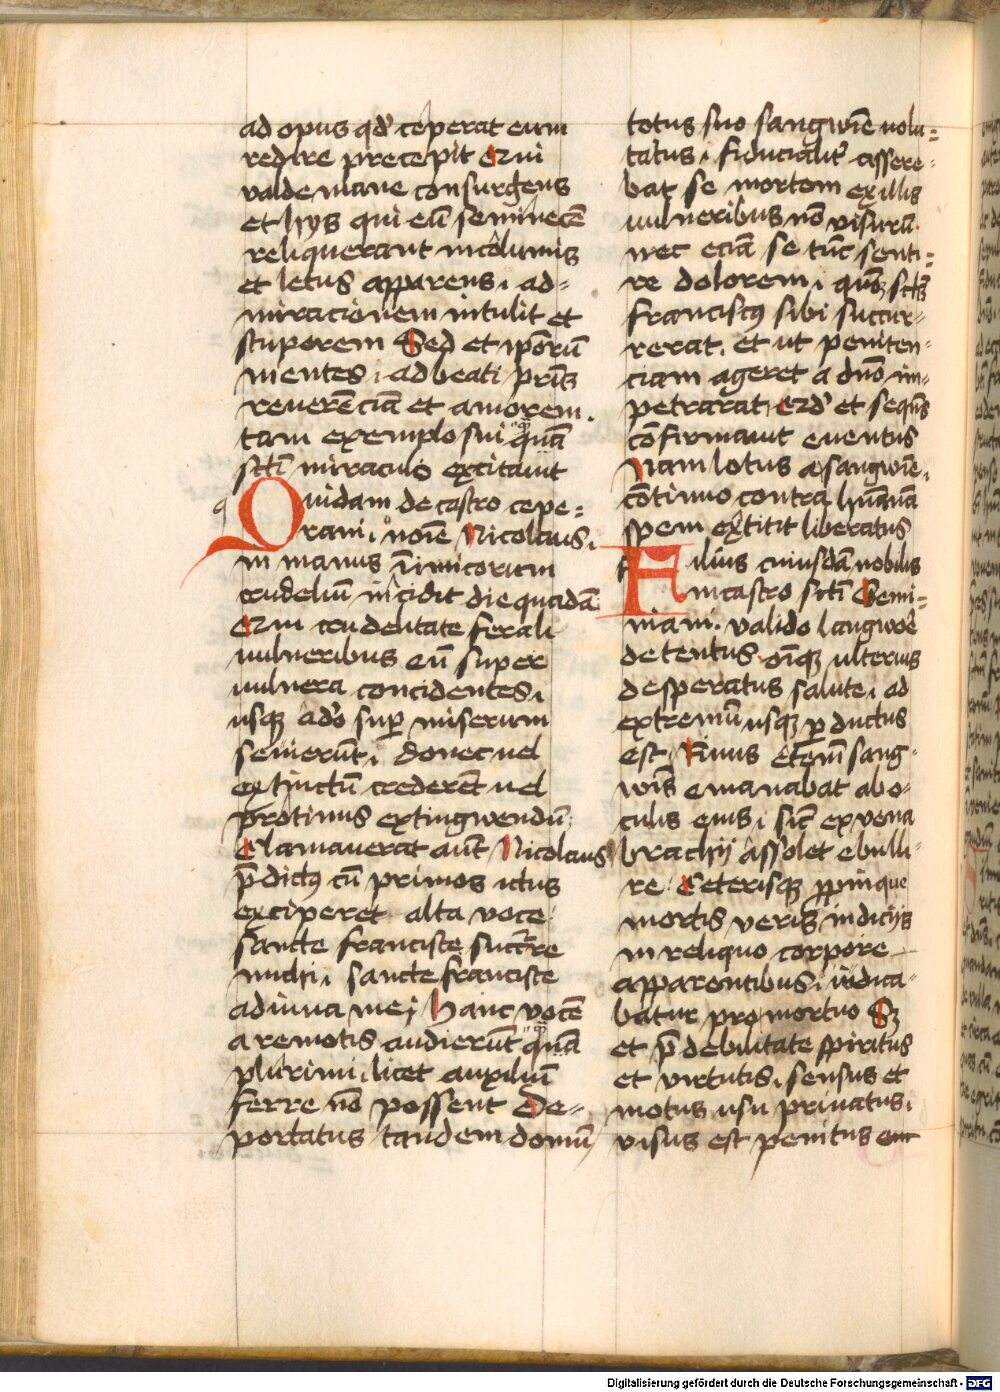 ad opus qd' ceperat eum
redire precepit Qui
valde mane consurgens
et hys qui eū seminecē
reliquerant incolumis
et letus apparens, ad=
miracionem intulit et
stuporem Sed et ipōrū
mentes, ad beati pr̄is
reuerēciā et amorem.
tam exemplo sui quā
sctī miraculo excitauit
Quidam de castro cepe=
rani, noīe Nicolaus,
in manus īnimicorum
crudeliū incidit die quadā
Qui crudelitate ferali
uulneribus eū super
uulnera concidentes,
usque ado sup miserum
seuierūt, donec uel
extinctū crederēt uel
protinus extingwendū
Clamauerat aūt Nicolaus
p̄dictꝰ cū primos ictus
exciperet alta voce
sancte francisce succ̄re
michi, sancte francisce
adiuua me; Hanc vocē
a remotis audierūt quā
plurimi, licet auxiliū
ferre nō possent De=
portatus tandem domū
totus suo sangwīe uolu=
tatus, fiducialit' assere=
bat se mortem ex illis
uulneribus nō visurū.
nec eciā se tūc senti=
re dolorem, quō sctūs
franciscꝰ sibi succur=
rerat. et ut peniten=
ciam ageret a dnō im=
petrarat, Qd' et seqūs
cōfirmauit euentus
Nam lotus a sangwīe,
cōtinuo contra hūanā
spem extitit liberatus
Filius cuiusdā nobilis
in castro sctī Gemi=
niani. valido langwoē
detentus oīque ulterius
desperatus salute, ad
extremū usque p ductus
est Riuus etem̄ sang=
wīs emanabat ab o=
culis eius, sicī ex vena
brachij assolet ebulli=
re Ceterisque ppinque
mortis veris indicijs
in reliquo corpore
apparentibus, iudica=
batur pro mortuo Sꝫ
et p̄ debilitate spiritus
et virtutis, sensus et
motus usu priuatus,
visus est penitus